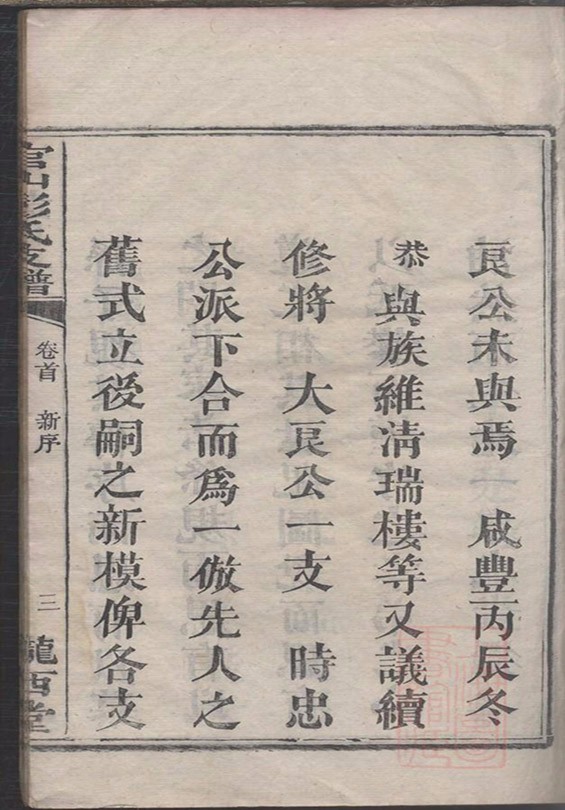 良公未與焉　咸豐丙辰冬
恭與族維清瑞樓等又議續
修將　大良公一支　時忠
公派下合而爲一倣先人之
舊式立後嗣之新模俾各支
官山彭氏支譜
卷首　新序
三
隴西堂